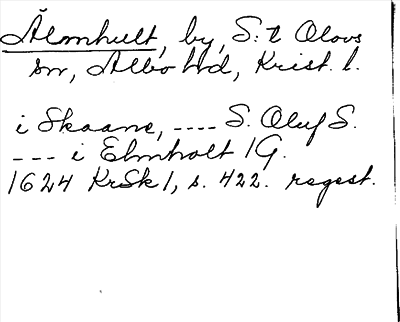 Älmhult, by, S:t Olovs
sn, Albo hd, Krist. l.
i Skaane, ---- S. Oluf S.
--- i Elmholt 1G.
1624 KrSk 1, s. 422. regest.